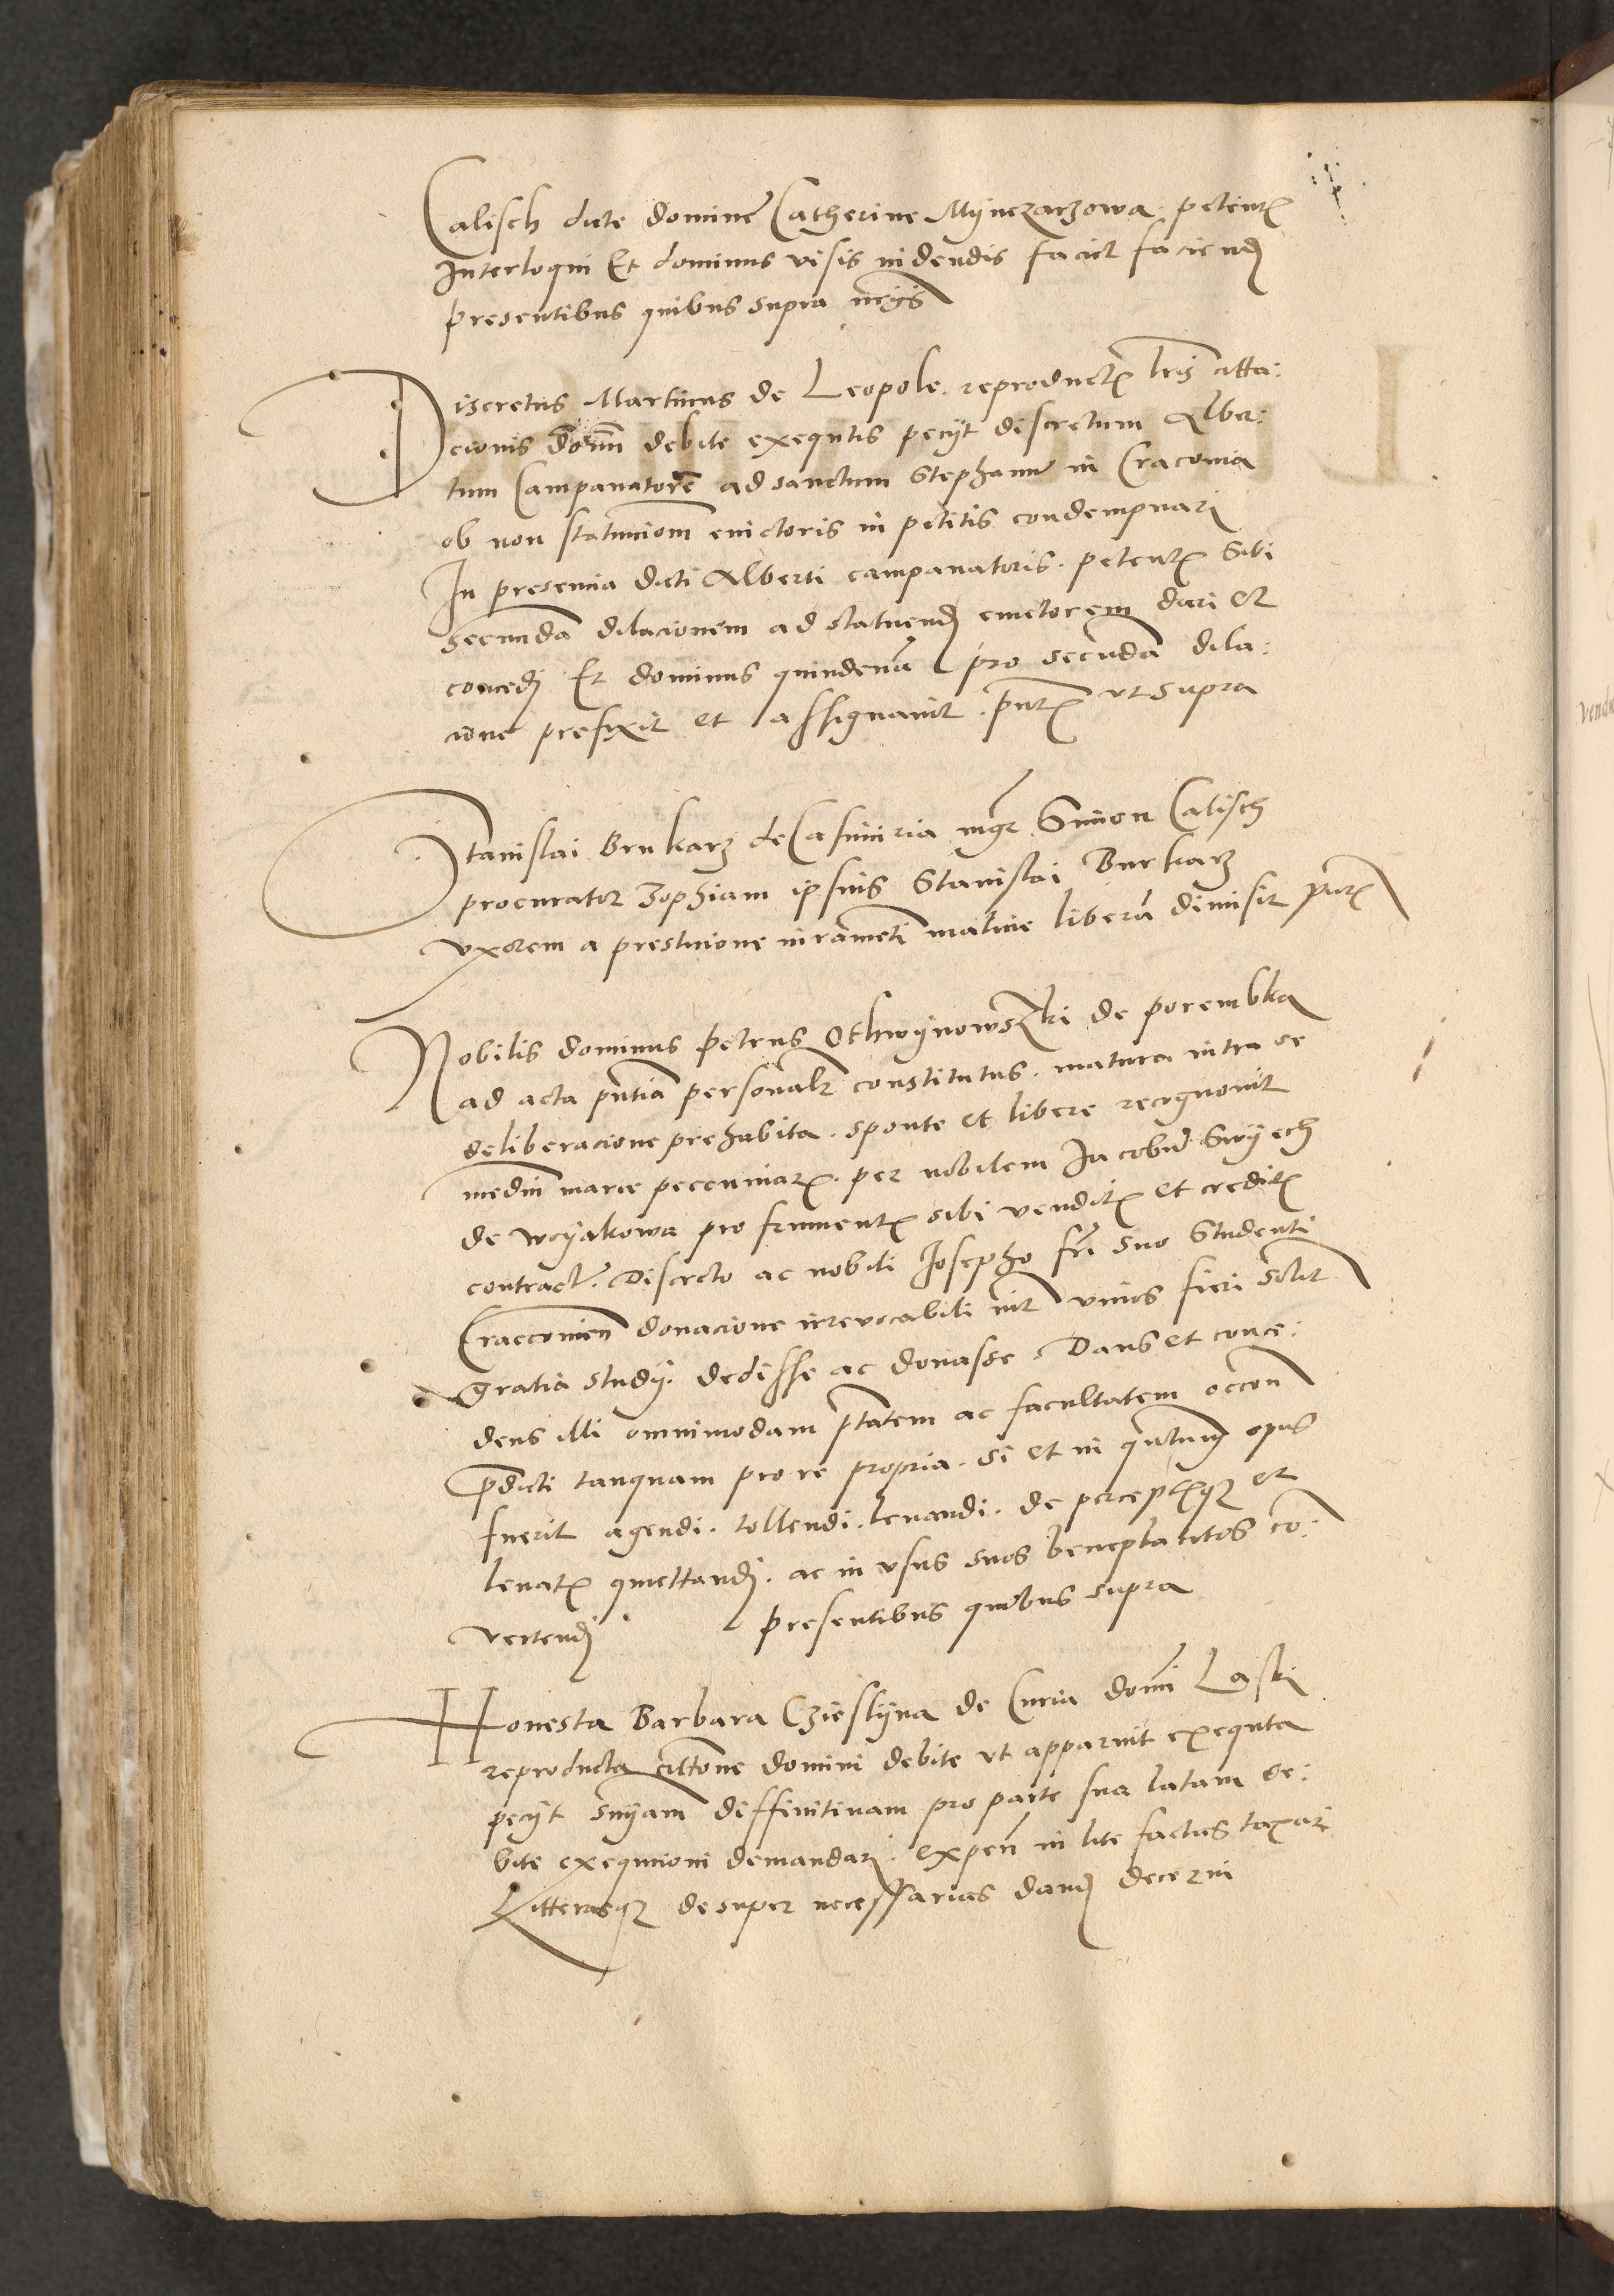 Calisch dicte domine Catherine Mÿnczarzowa petentꝭ
Interloqui Et dominus visis uidendis faciet faciendꝭ
presentibus quibus supra
Discretus Martinus de Leopole reproductꝭ lrīs citta:
cionis domī debite exequtis pecÿt discretum Alber:
tum Campanatorē ad sanctum Stephanū in Cracouia
ob non statucionem euictoris in petitis condempnari
In presencia dicti Alberti campanatoris petentꝭ sibi
Secundā dilacionem ad statuendꝭ euictorem dari et
concedi Et dominus quindenā pro secūda dila:
cione prefixit et assignauit pñtꝭ vt supra
Stanislai Brukarz de Casimiria mgr̄ Simon Calisch
procurator Zophiam ipsius Stanislai Burkarz
vxorem a prestacione iuramēti malicie liberā dimisit pñtꝭ
Nobilis dominus Petrus Othwÿnowszki de porembka
ad acta pñtia personalr̄ constitutus matura intra se
deliberacione prehabita sponte et libere recognouit
medīn marce pecuniarꝭ per nobilem Iacobū Swÿech
de woÿakowa pro frumentꝭ sibi venditꝭ et creditꝭ
contract. Discreto ac nobili Iosepho frī suo Studenti
Cracouien donacione irreuocabili int viuos fieri solit
gratia studÿ dedisse ac donasse Dans et conce:
dens illi omnimodam ptātem ac facultatem occōn
p̄dicti tanquam pro re propria si et in quātum opus
fuerit agendi tollendi leuandi de perceptisqꝫ et
leuatꝭ quiettandi ac in vsus suos beneplacitos cō:
vertendi presentibus quibus supra
Honesta Barbara Czieslÿna de Curia domī Laski
reproducta cittōne domini debite vt apparuit exequta
pecÿt snÿam diffinitiuam pro parte sua latam de:
bite exequcioni demandari expeñ in lite factas taxari
Litterasqꝫ desuper necessarias dandꝭ decerni